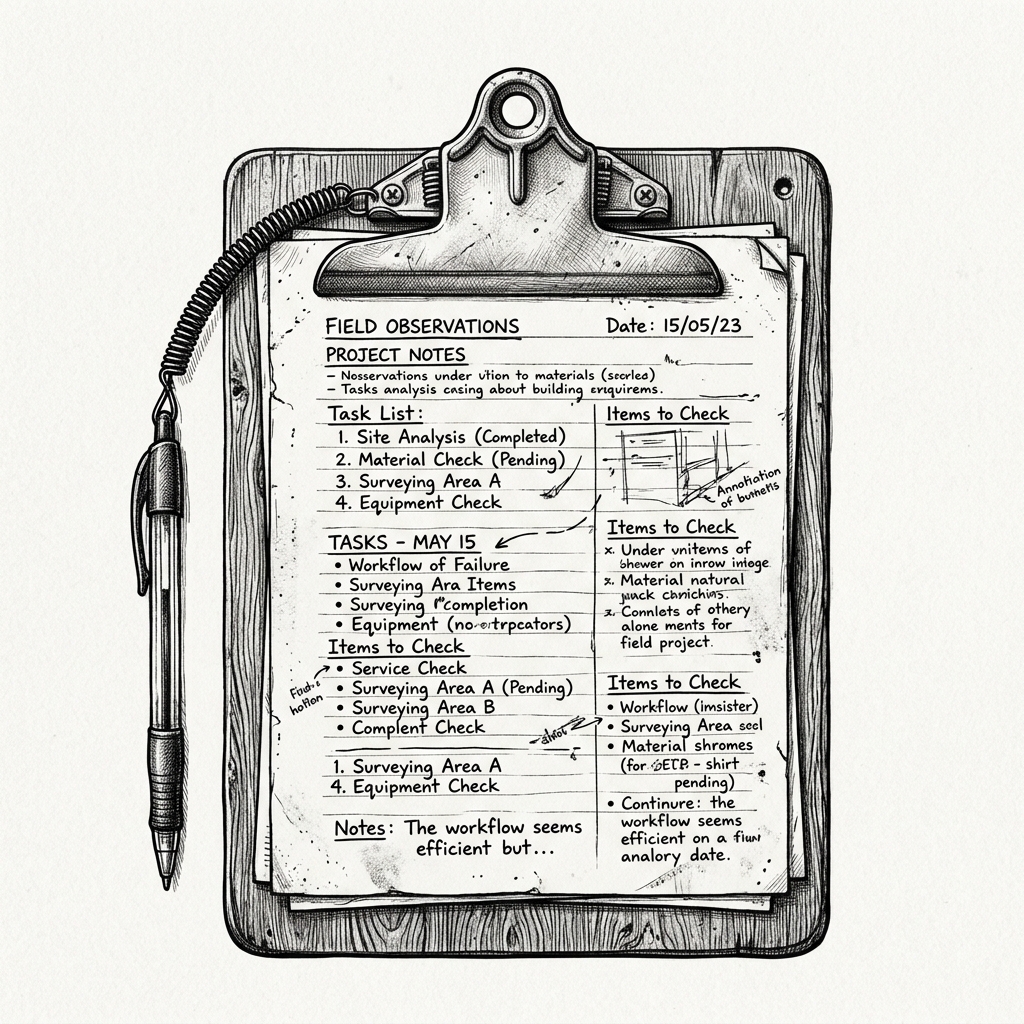 FIELD OBSERVATIONS
Date: 15/05/23
PROJECT NOTES
– Nosservations under to materials
– Tasks analysis casing about building
Task List:
1. Site Analysis (Completed)
2. Material Check (Pending)
3. Surveying Area A
4. Equipment Check
TASKS – MAY 15
• Workflow of Failure
• Surveying Ara Items
• Surveying completion
• Equipment
Items to Check
• Service Check
• Surveying Area A (Pending)
• Surveying Area B
• Complent Check
1. Surveying Area A
4. Equipment Check
Notes: The workflow seems
efficient but...
Items to Check
Annotiation
of
Items to Check
x. Under vnitems of
on inrow
Material natural
of othery
alone ments for
field project.
Items to Check
• Workflow (imsister)
• Surveying Area
• Material shromes
(for – shirt
pending)
• Continure: the
workflow seems
efficient on a
analory date.